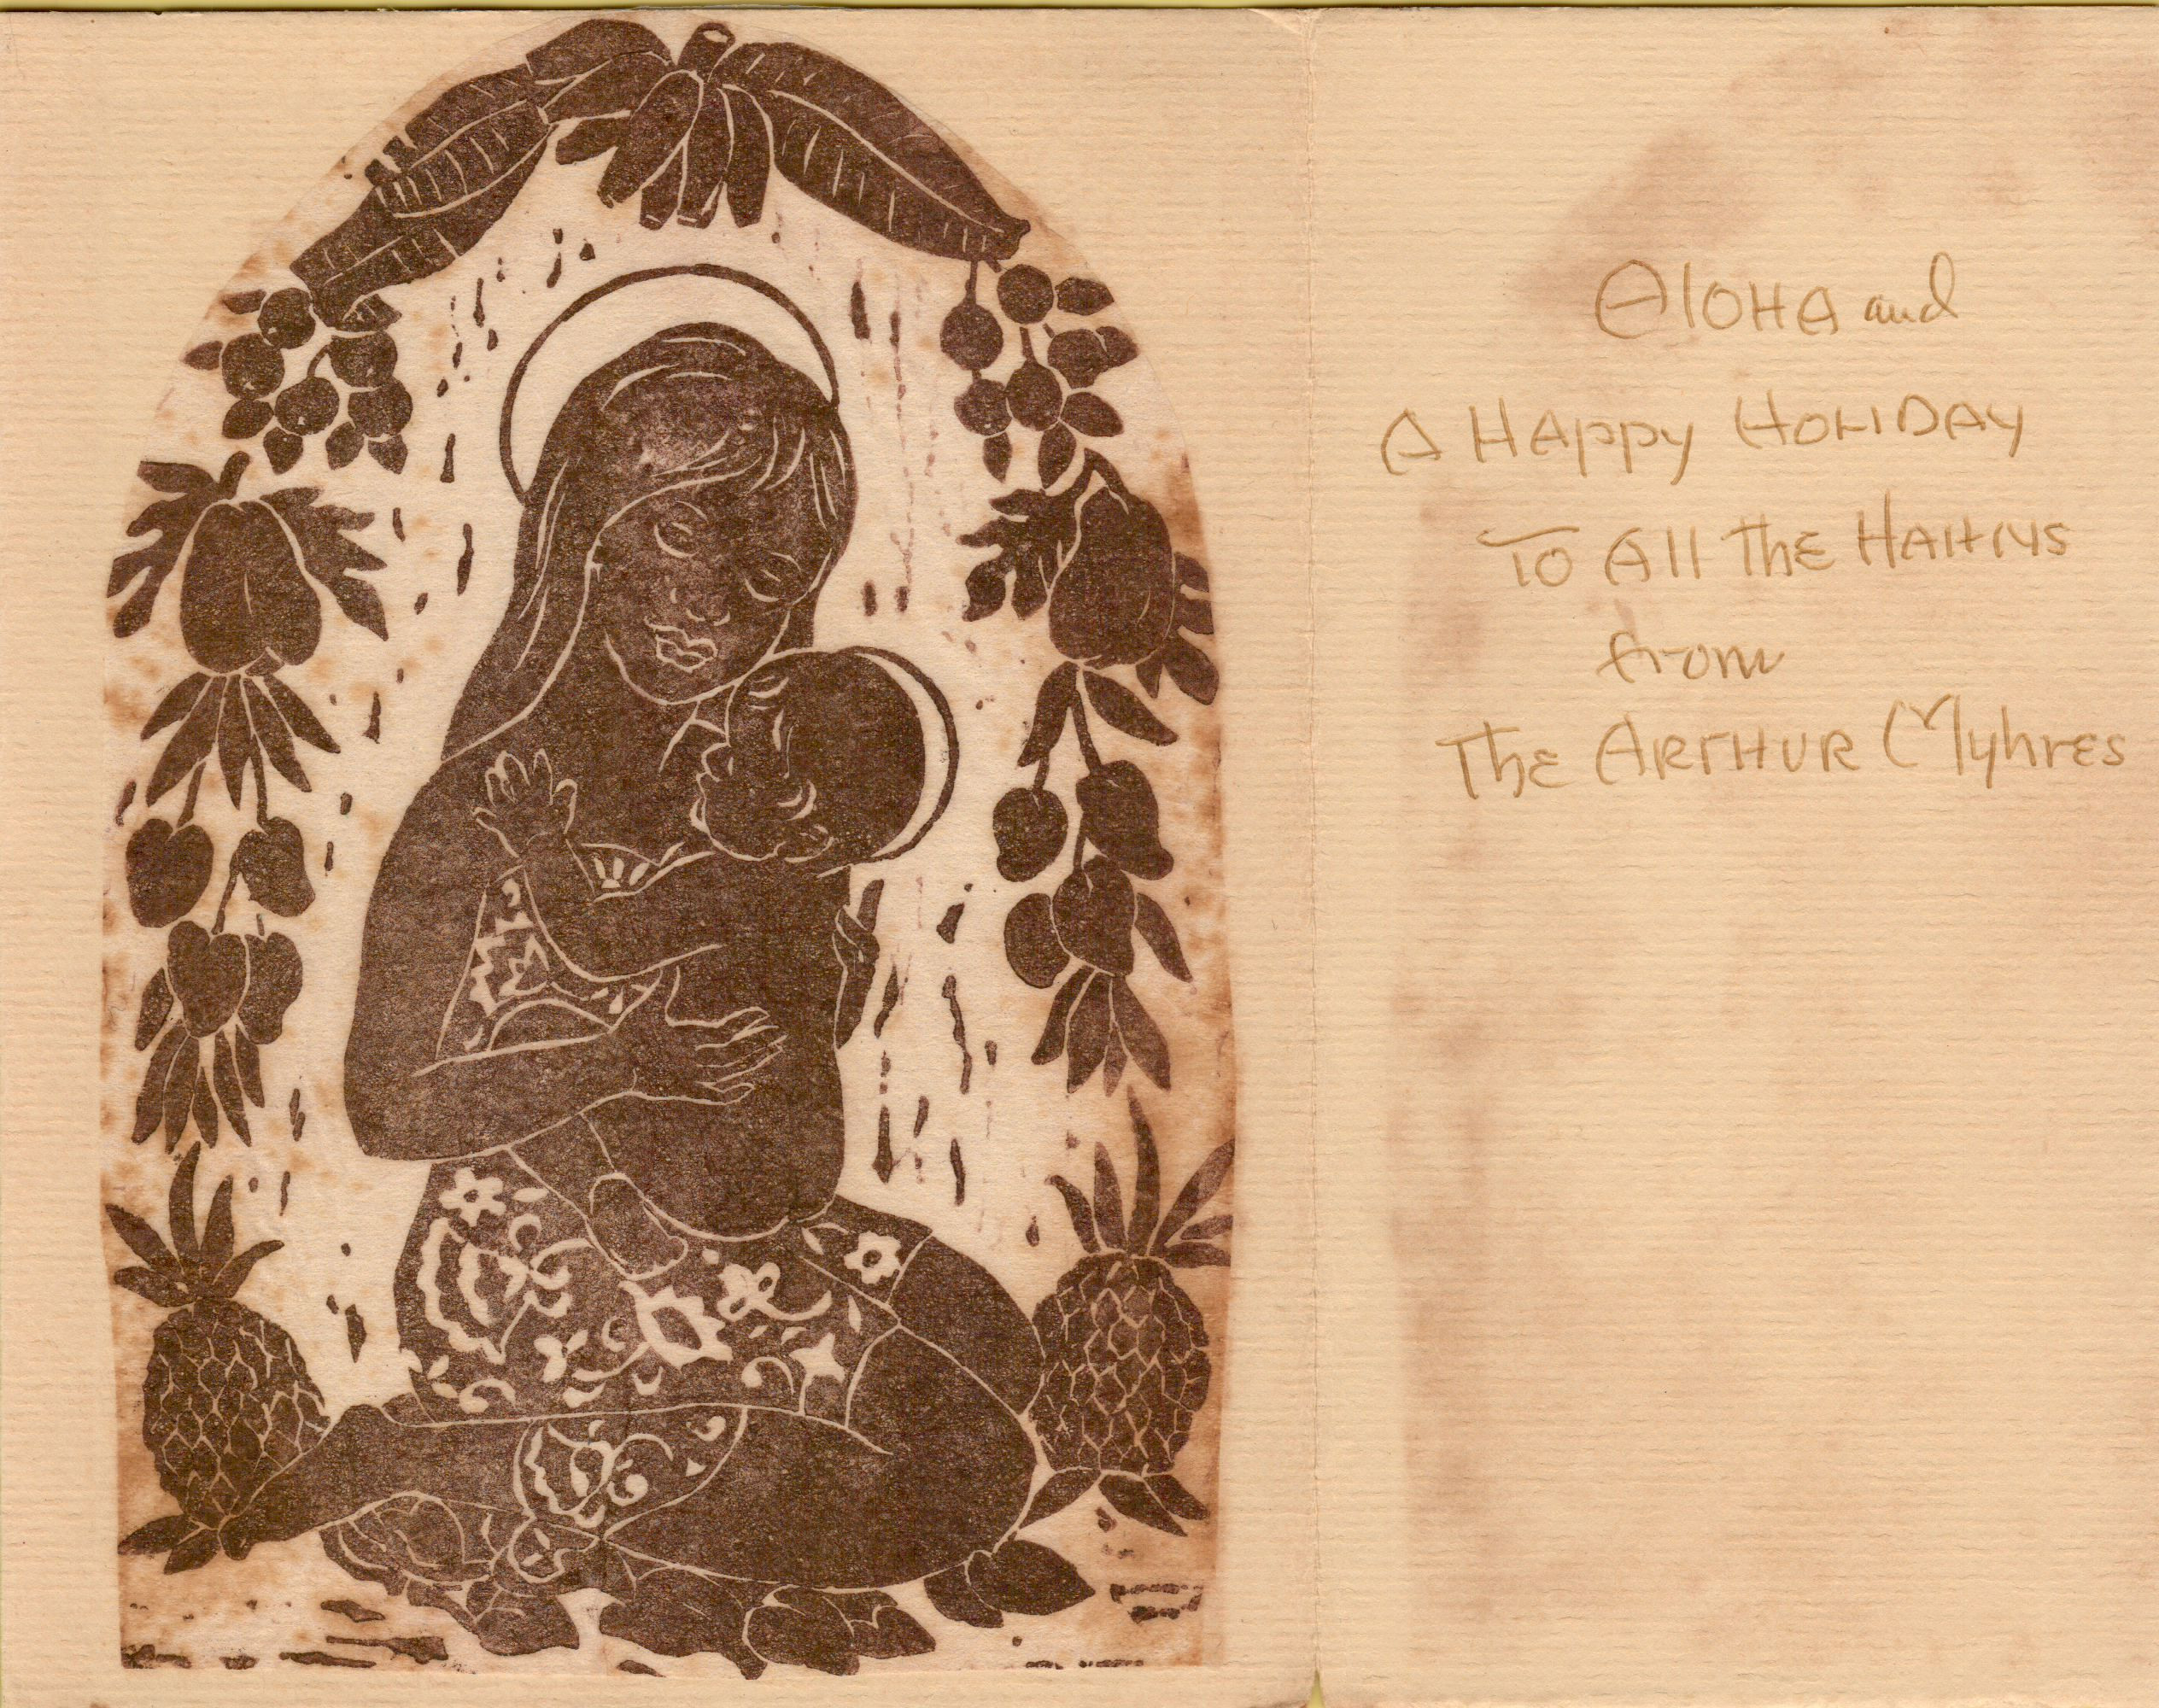 Aloha and
A Happy Holiday
To All The
from
The Arthur Myhres